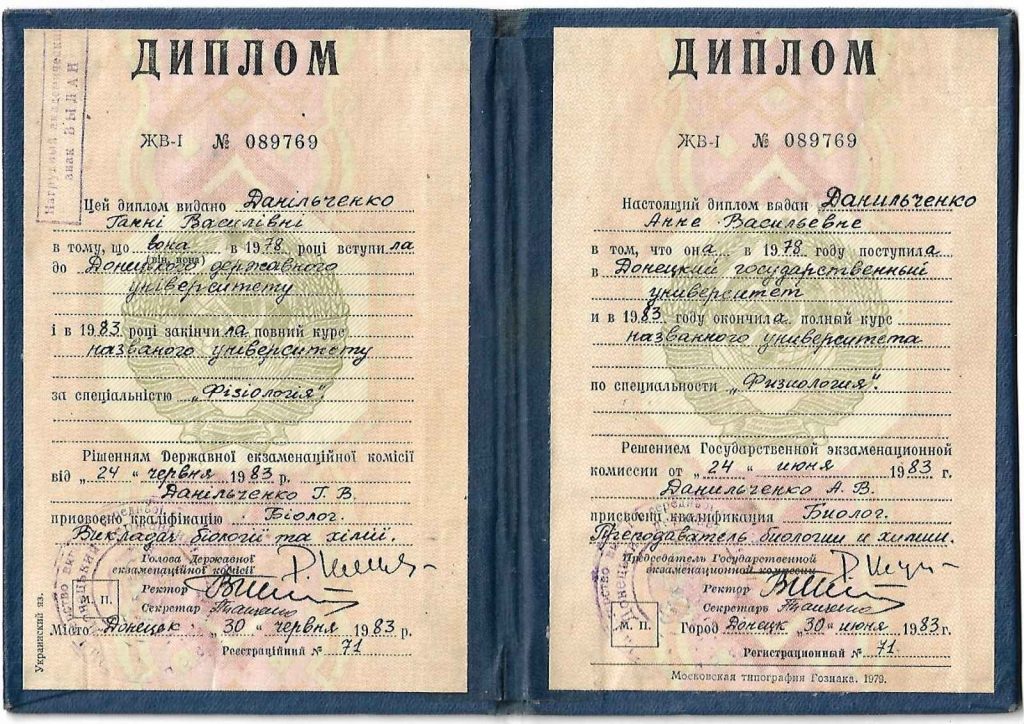 Нагрудный академический
знак ВЫДАН
ДИПЛОМ
ЖВ-I № 089769
Цей диплом видано Данільченко
Ганні Василівні
в тому, що вона в 1978 році вступила
(він, вона)
до Донецького державного
університету
і в 1983 році закінчила повний курс
названого університету
за спеціальністю „Фізіологія".
Рішенням Державної екзаменаційної комісії
від „24" червня 1983 р.
Данільченко Г. В.
присвоєно кваліфікацію Біолог.
Викладач біології та хімії.
Голова Державної
екзаменаційної комісії
Ректор
М. П.
Секретар
Місто Донецьк „30" червня 1983 р.
Реєстраційний № 71
Украинский яз.
ДИПЛОМ
ЖВ-I № 089769
Настоящий диплом выдан Данильченко
Анне Васильевне
в том, что она в 1978 году поступила
в Донецкий государственный
университет
и в 1983 году окончила полный курс
названного университета
по специальности „Физиология".
Решением Государственной экзаменационной
комиссии от „24" июня 1983 г.
Данильченко А. В.
присвоена квалификация Биолог.
Преподаватель биологии и химии.
Председатель Государственной
экзаменационной комиссии
Ректор
М. П.
Секретарь
Город Донецк „30" июня 1983 г.
Регистрационный № 71.
Московская типография Гознака. 1979.